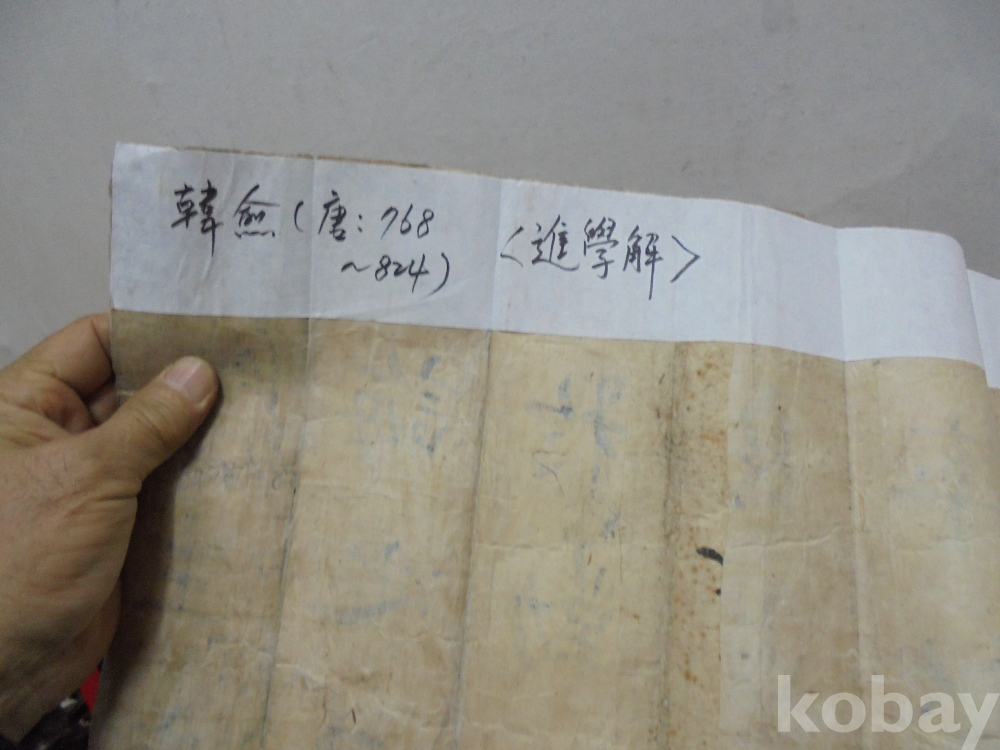 韓愈(唐:768
~824)
<進學解>
kobay